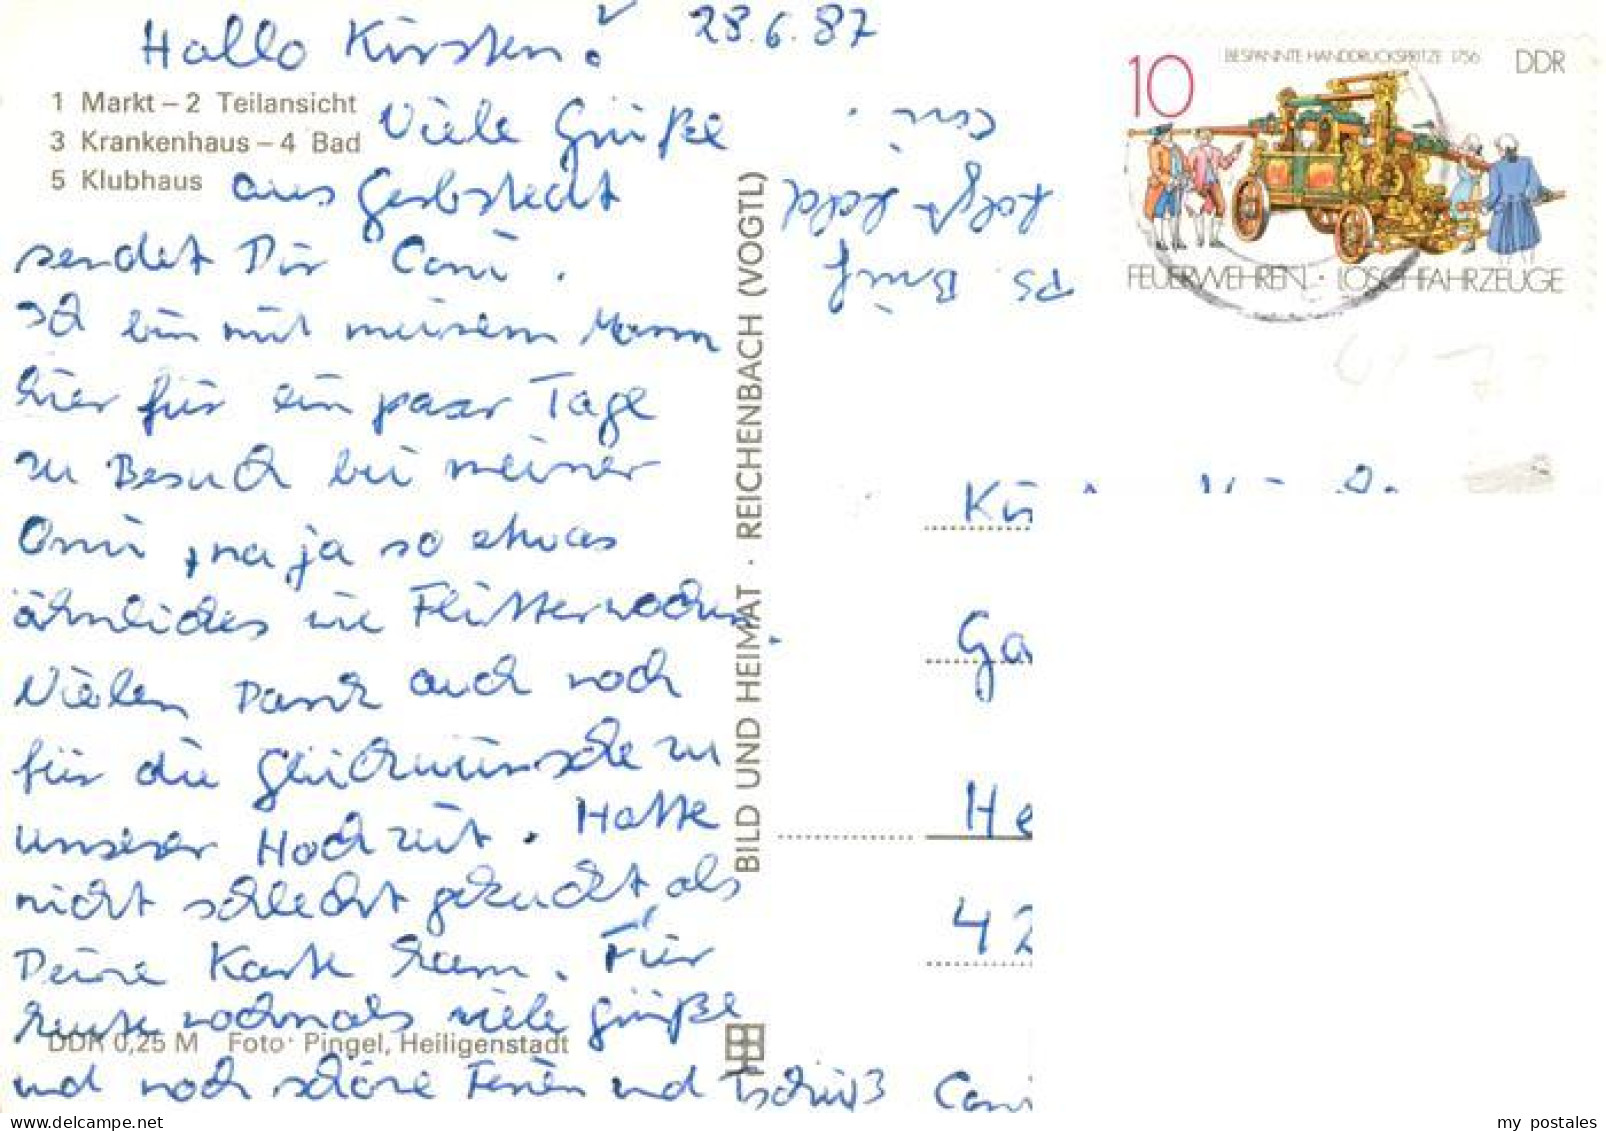 Hallo Kirsten! 28.6.87
1 Markt – 2 Teilansicht
3 Krankenhaus – 4 Bad
5 Klubhaus
Viele Grüße
aus Gerbstedt
sendet Dir Coni.
Ich bin mit meinem Mann
hier für ein paar Tage
zu Besuch bei meiner
Omi, na ja so etwas
ähnliches wie Flitterwochen.
Vielen Dank auch noch
für die Glückwünsche zu
unserer Hochzeit. Hatte
nicht schlecht gekuckt als
Deine Karte kam. Für
heute nochmals viele Grüße
und noch schöne Ferien und Tschüß Coni
DDR 0,25 M Foto: Pingel, Heiligenstadt
BILD UND HEIMAT · REICHENBACH (VOGTL)
PS Brief
folgt bald
Coni.
10
BESPANNTE HANDDRUCKSPRITZE 1756
DDR
FEUERWEHREN · LÖSCHFAHRZEUGE
Ki
Ga
He
42
my postales